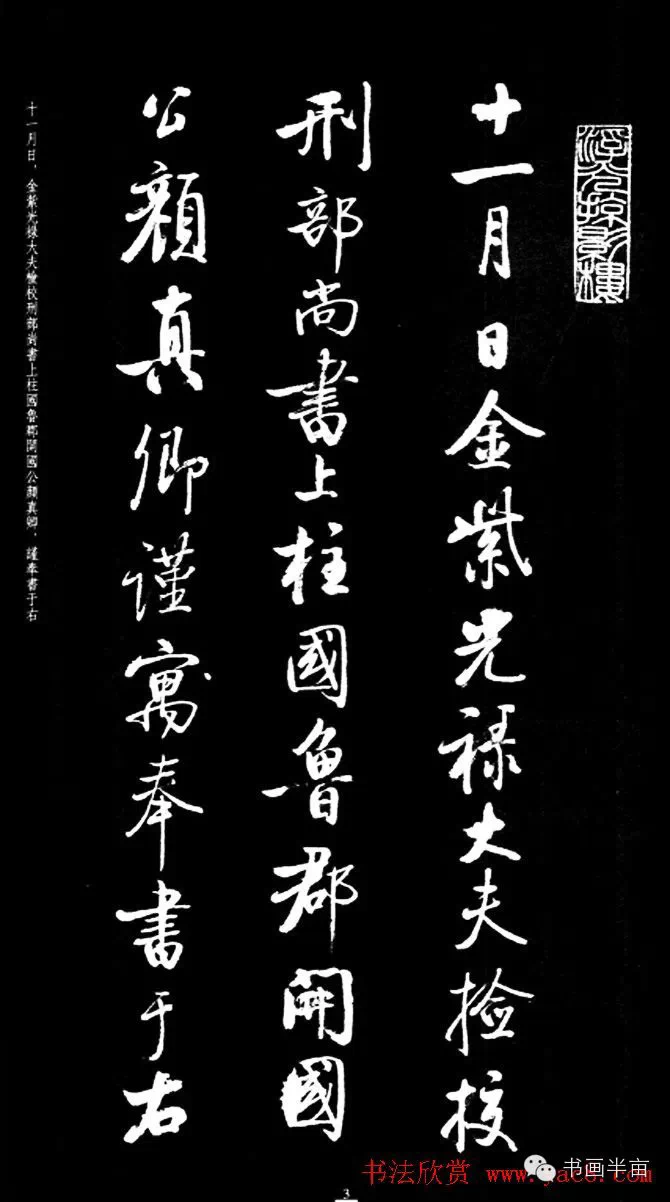 十一月日金紫光禄大夫捡挍
刑部尚書上柱國魯郡開國
公顏真卿謹寓奉書于右
十一月日，金紫光祿大夫檢校刑部尚書上柱國魯郡開國公顏真卿，謹奉書于右
书法欣赏
书画半亩
3